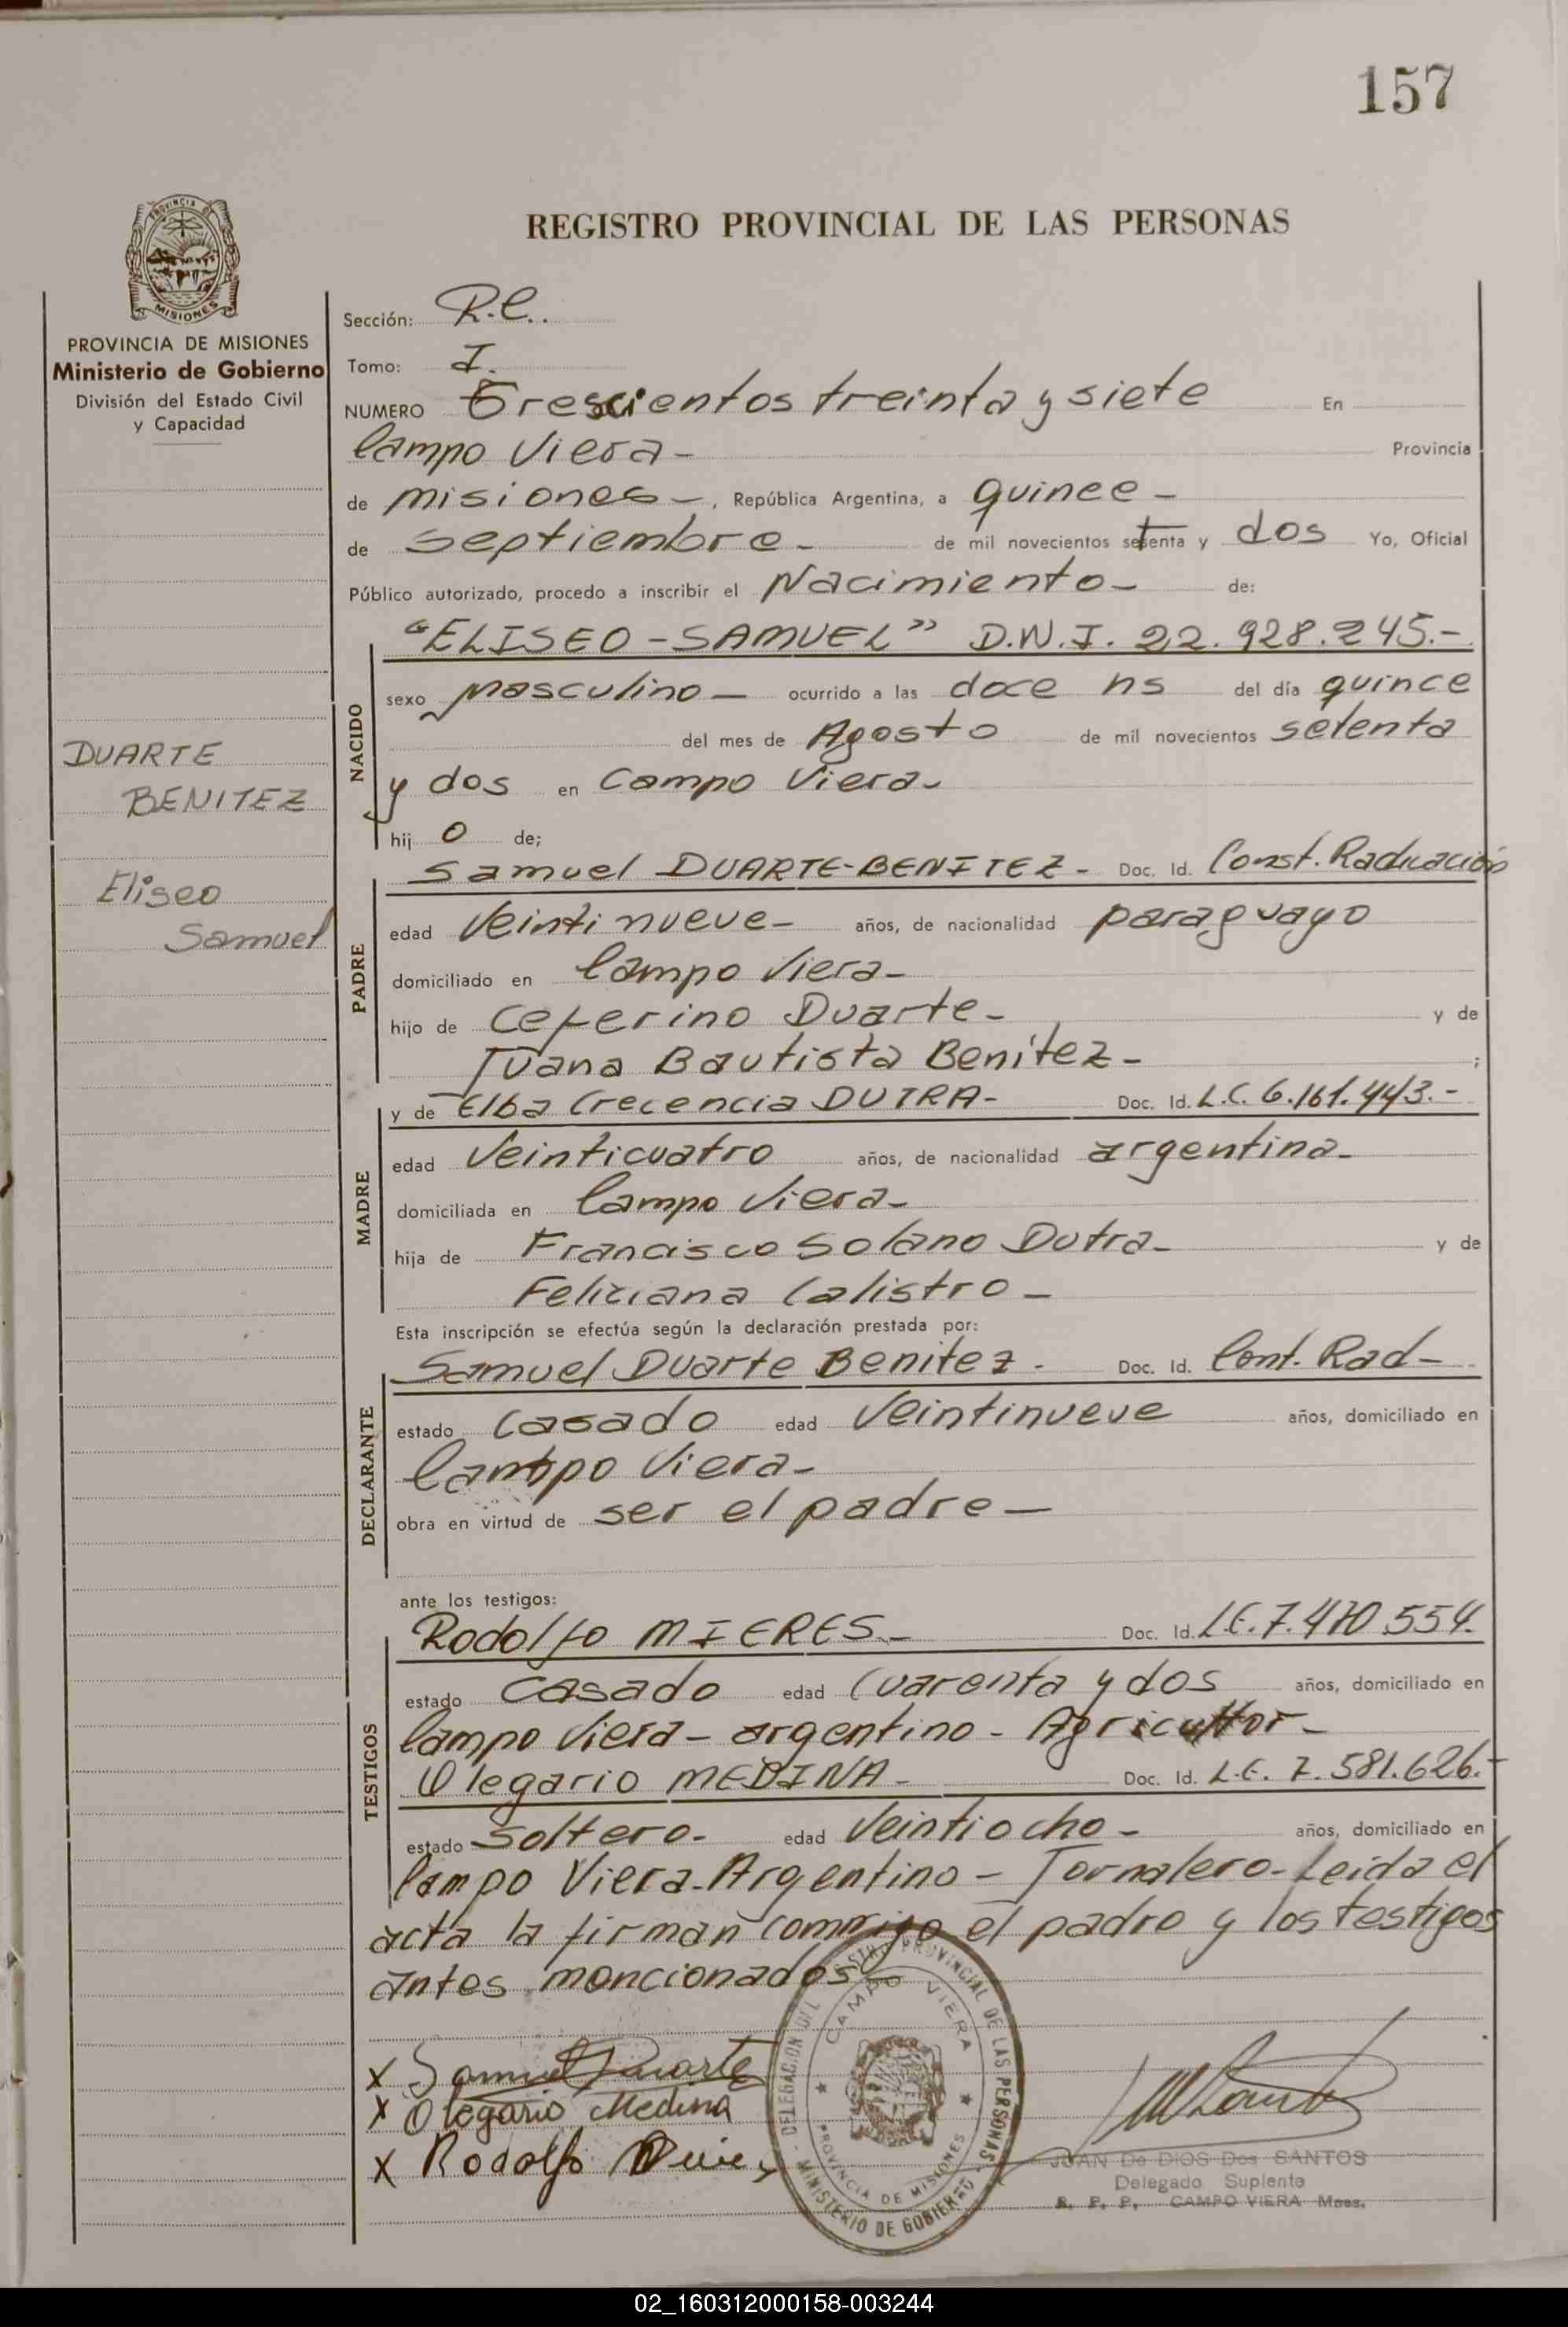 157
PROVINCIA DE
MISIONES
REGISTRO PROVINCIAL DE LAS PERSONAS
PROVINCIA DE MISIONES
Ministerio de Gobierno
División del Estado Civil
y Capacidad
DUARTE
BENITEZ
Eliseo
Samuel
Sección: R.C.
Tomo: I.
NUMERO Trescientos treinta y siete En
Campo Viera - Provincia
de misiones -, República Argentina, a quince -
de Septiembre - de mil novecientos setenta y dos Yo, Oficial
Público autorizado, procedo a inscribir el Nacimiento - de:
NACIDO
"ELISEO - SAMUEL" D.N.I. 22.928.245.-
sexo masculino - ocurrido a las doce hs del día quince
del mes de Agosto de mil novecientos setenta
y dos en Campo Viera -
hij o de;
PADRE
Samuel DUARTE-BENITEZ - Doc. Id. Const. Radicación
edad Veintinueve - años, de nacionalidad paraguayo
domiciliado en Campo Viera -
hijo de Ceferino Duarte - y de
Juana Bautista Benítez - ;
MADRE
y de Elba Crecencia DUTRA - Doc. Id. L.C. 6.161.443.-
edad Veinticuatro años, de nacionalidad argentina -
domiciliada en Campo Viera -
hija de Francisco Solano Dutra - y de
Feliciana Calistro -
Esta inscripción se efectúa según la declaración prestada por:
DECLARANTE
Samuel Duarte Benitez - Doc. Id. Cont. Rad -
estado Casado edad Veintinueve años, domiciliado en
Campo Viera -
obra en virtud de ser el padre -
ante los testigos:
TESTIGOS
Rodolfo MIERES - Doc. Id. L.E. 7.470.554.
estado Casado edad Cuarenta y dos años, domiciliado en
Campo Viera - argentino - Agricultor -
Olegario MEDINA - Doc. Id. L.E. 7.581.626.-
estado Soltero - edad Veintiocho - años, domiciliado en
Campo Viera - Argentino - Jornalero - Leida el
acta la firman conmigo el padre y los testigos
antes mencionados -
x Samuel Duarte
x Olegario Medina
x Rodolfo
DELEGACION DEL REGISTRO PROVINCIAL DE LAS PERSONAS
CAMPO VIERA
PROVINCIA DE MISIONES
MINISTERIO DE GOBIERNO
JUAN De DIOS Dos SANTOS
Delegado Suplente
R. P. P. CAMPO VIERA Mnes.
02_160312000158-003244